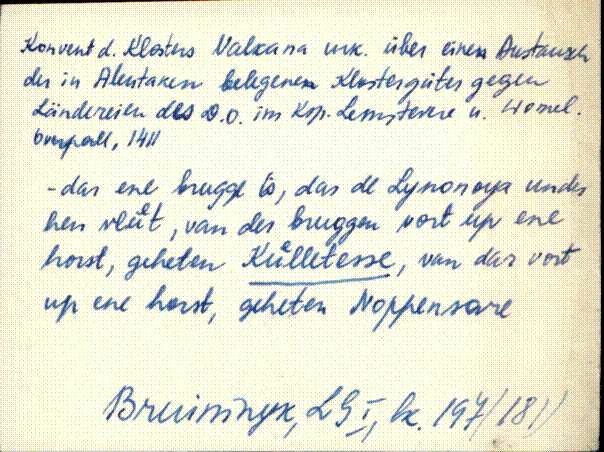 Konvent d. Klosters Valkana urk. über einen Austausch
der in Alentaken belegenen Klostergüter gegen
Ländereien des D.O. im Ksp.
Overpall, 1411
- dar ene brugge to, das de Lynonoya under
hen vlůt, van der bruggen vort up ene
horst, geheten Kůlletesse, van dar vort
up ene horst, geheten Noppensare
Bruiningk, LG I, lk. 197/181/